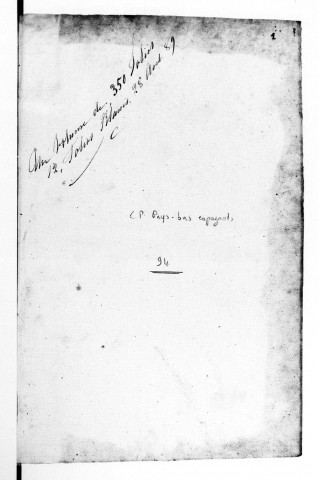 1
Un volume de 350 folios
12 folios blancs. 28 Aout 89
C P Pays-bas espagnols
94